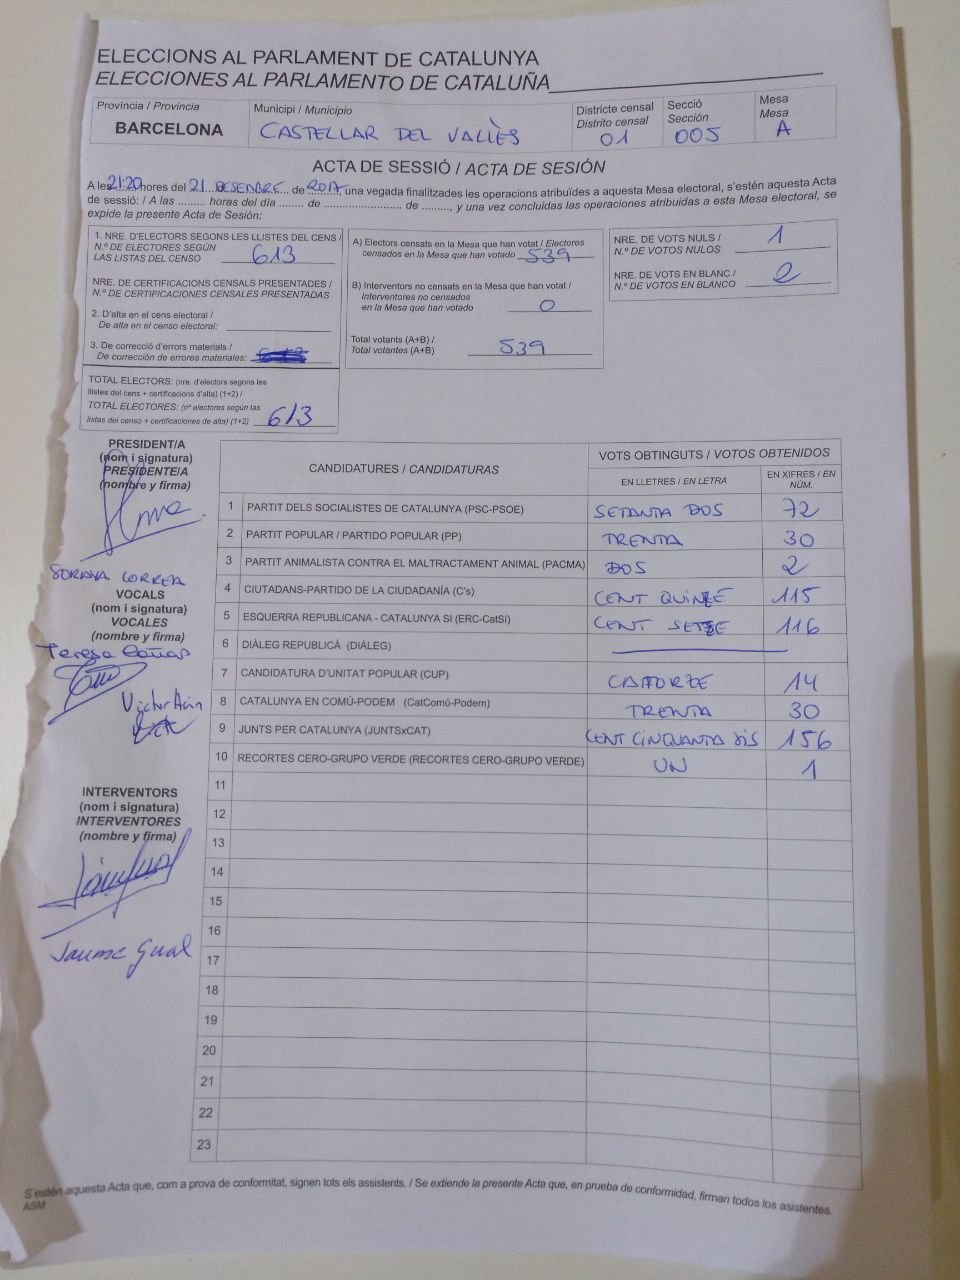 ELECCIONS AL PARLAMENT DE CATALUNYA
ELECCIONES AL PARLAMENTO DE CATALUÑA
Província / Provincia
BARCELONA
Municipi / Municipio
CASTELLAR DEL VALLÈS
Districte censal
Distrito censal
01
Secció
Sección
005
Mesa
Mesa
A
ACTA DE SESSIÓ / ACTA DE SESIÓN
A les 21:20 hores del 21 DESEMBRE de 2017, una vegada finalitzades les operacions atribuïdes a aquesta Mesa electoral, s'estén aquesta Acta
de sessió: / A las ......... horas del día ........ de ........................ de ........., y una vez concluidas las operaciones atribuidas a esta Mesa electoral, se
expide la presente Acta de Sesión:
1. NRE. D'ELECTORS SEGONS LES LLISTES DEL CENS /
N.º DE ELECTORES SEGÚN
LAS LISTAS DEL CENSO 613
NRE. DE CERTIFICACIONS CENSALS PRESENTADES /
N.º DE CERTIFICACIONES CENSALES PRESENTADAS
2. D'alta en el cens electoral /
De alta en el censo electoral:
3. De correcció d'errors materials /
De corrección de errores materiales:
TOTAL ELECTORS: (nre. d'electors segons les
llistes del cens + certificacions d'alta) (1+2) /
TOTAL ELECTORES: (nº electores según las
listas del censo + certificaciones de alta) (1+2) 613
A) Electors censats en la Mesa que han votat / Electores
censados en la Mesa que han votado 539
B) Interventors no censats en la Mesa que han votat /
Interventores no censados
en la Mesa que han votado 0
Total votants (A+B) /
Total votantes (A+B) 539
NRE. DE VOTS NULS /
N.º DE VOTOS NULOS 1
NRE. DE VOTS EN BLANC /
N.º DE VOTOS EN BLANCO 2
PRESIDENT/A
(nom i signatura)
PRESIDENTE/A
(nombre y firma)
SORAYA CORREA
VOCALS
(nom i signatura)
VOCALES
(nombre y firma)
Teresa
Víctor
INTERVENTORS
(nom i signatura)
INTERVENTORES
(nombre y firma)
Jaume Gual
CANDIDATURES / CANDIDATURAS
VOTS OBTINGUTS / VOTOS OBTENIDOS
EN LLETRES / EN LETRA
EN XIFRES / EN
NÚM.
1 PARTIT DELS SOCIALISTES DE CATALUNYA (PSC-PSOE) SETANTA DOS 72
2 PARTIT POPULAR / PARTIDO POPULAR (PP) TRENTA 30
3 PARTIT ANIMALISTA CONTRA EL MALTRACTAMENT ANIMAL (PACMA) DOS 2
4 CIUTADANS-PARTIDO DE LA CIUDADANÍA (C's) CENT QUINZE 115
5 ESQUERRA REPUBLICANA - CATALUNYA SI (ERC-CatSí) CENT SETZE 116
6 DIÀLEG REPUBLICÀ (DIÀLEG)
7 CANDIDATURA D'UNITAT POPULAR (CUP) CATORZE 14
8 CATALUNYA EN COMÚ-PODEM (CatComú-Podem) TRENTA 30
9 JUNTS PER CATALUNYA (JUNTSxCAT) CENT CINQUANTA SIS 156
10 RECORTES CERO-GRUPO VERDE (RECORTES CERO-GRUPO VERDE) UN 1
11
12
13
14
15
16
17
18
19
20
21
22
23
S'estén aquesta Acta que, com a prova de conformitat, signen tots els assistents. / Se extiende la presente Acta que, en prueba de conformidad, firman todos los asistentes.
ASM